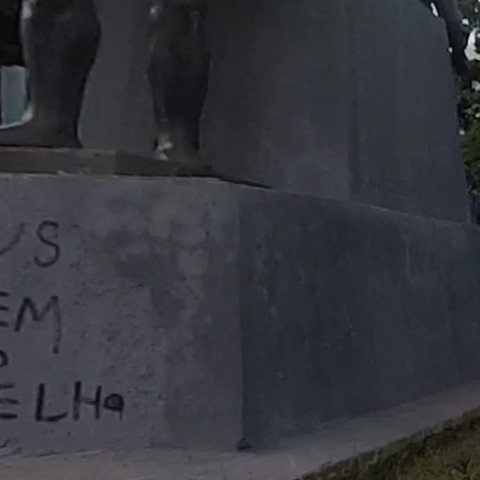 US
EM
ELHa